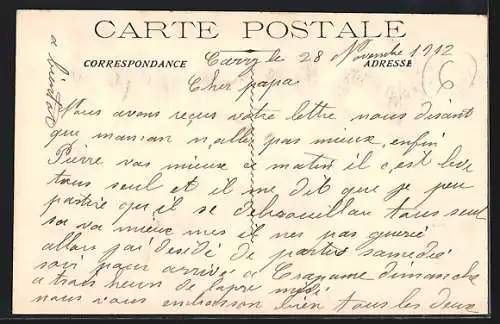 CARTE POSTALE
a bientot
CORRESPONDANCE
ADRESSE
Carry le 28 Novembre 1912
Cher papa
Nous avons reçus votre lettre nous disant
que maman n'allez pas mieux, enfin
Pierre vas mieux ce matin il c'est levé
tous seul et il me dit que je peu
partire qu'il se debrouillera tous seul
sa va mieux mes il nes pas gueri
allors j'ai désidé de partir samedie
soir pour arrivé a dimanche
a trois heurs de l'apre midi
nous vous embrasson bien tous les deux